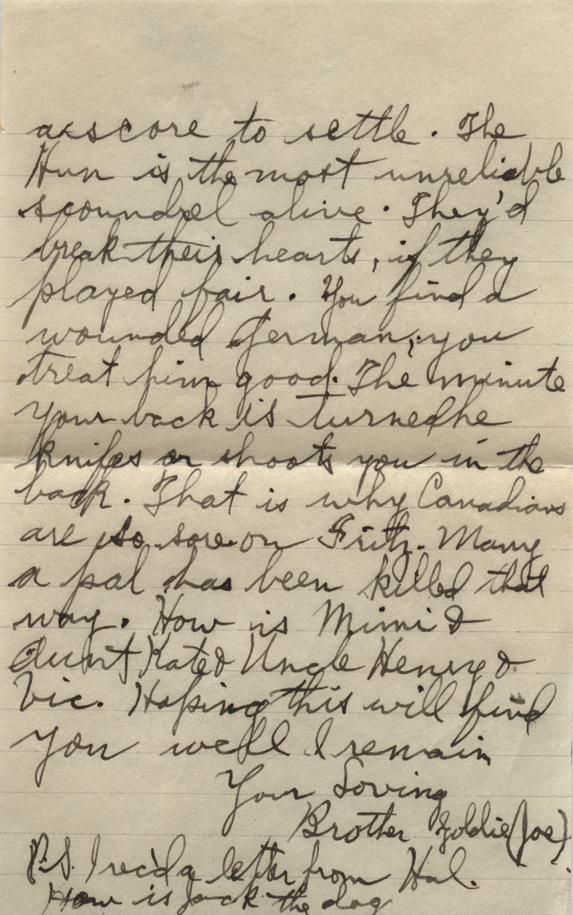 a score to settle. The
Hun is the most unreliable
scoundrel alive. They'd
break their hearts, if they
played fair. You find a
wounded German, you
treat him good. The minute
your back is turned he
knifes or shoots you in the
back. That is why Canadians
are so sore on Fritz. Many
a pal has been killed that
way. How is Mimi &
Aunt Kate & Uncle Henry &
Vic. Hoping this will find
you well I remain
Your Loving
Brother Goldie (Joe)
P.S. I rec'd a letter from Hal.
How is Jack the dog